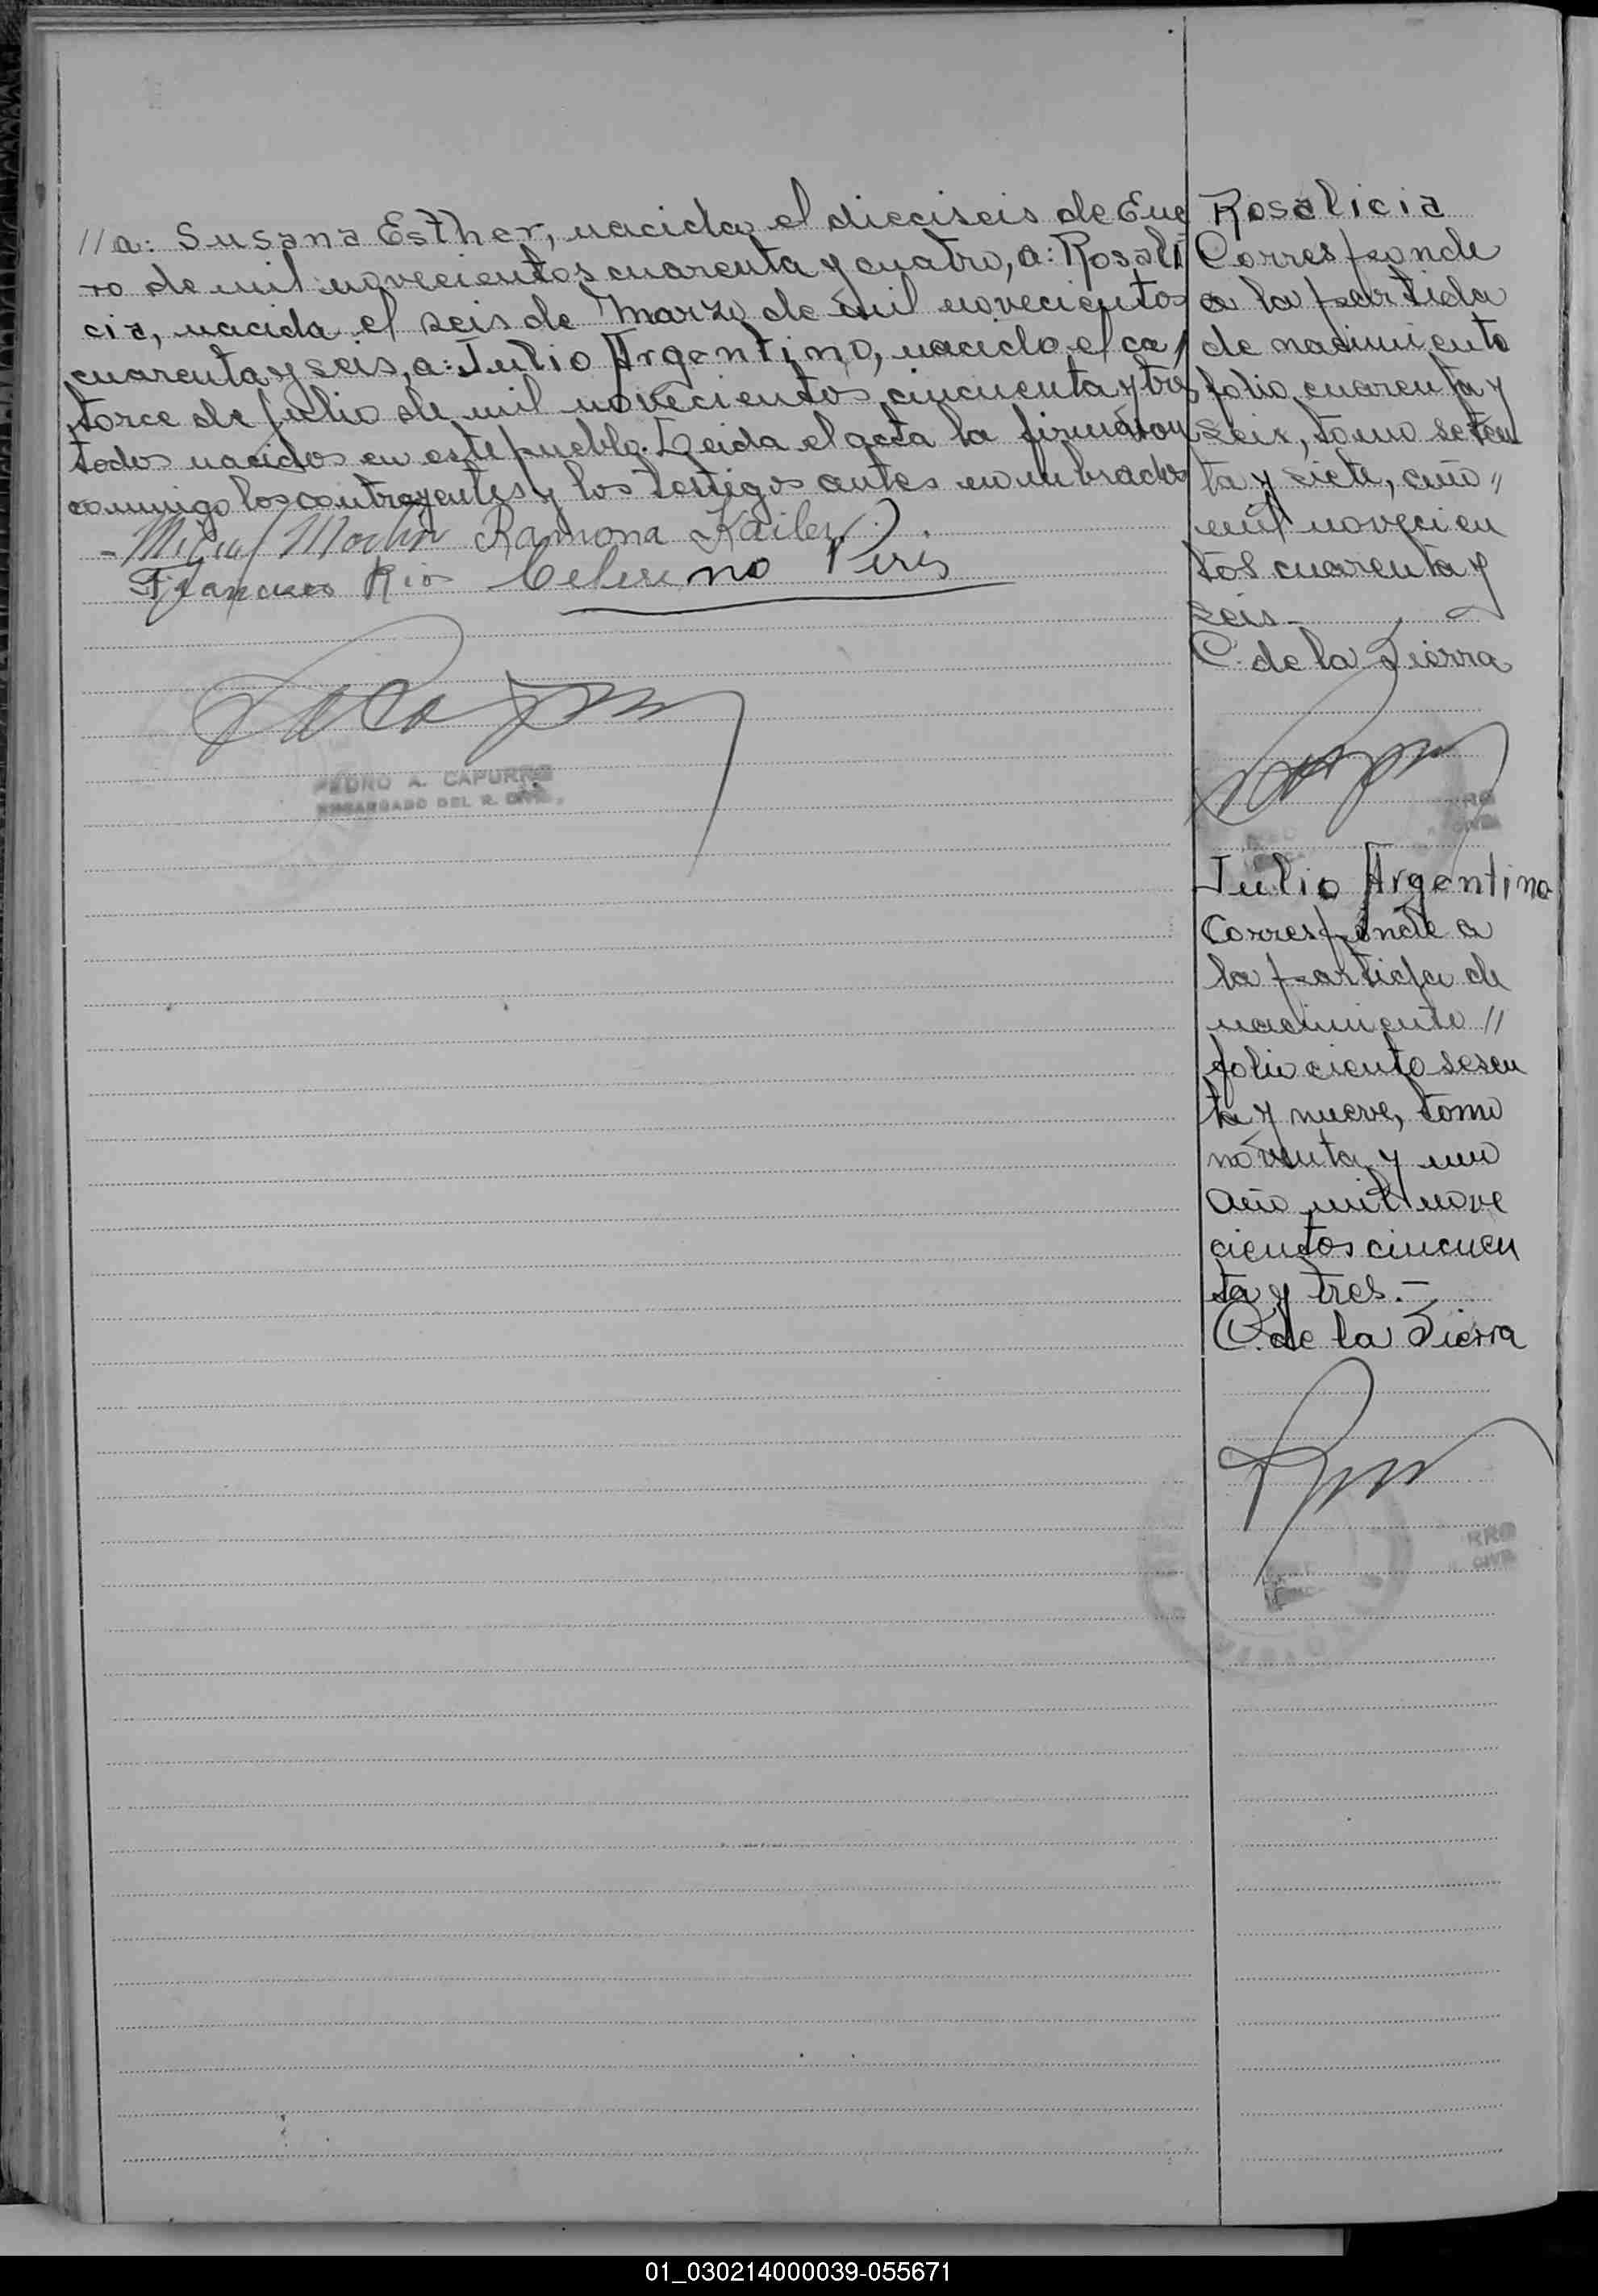 //a: Susana Esther, nacida el dieciseis de Ene
ro de mil novecientos cuarenta y cuatro, a: Rosali
cia, nacida el seis de Marzo de mil novecientos
cuarenta y seis, a: Julio Argentino, nacido el ca/
torce de Julio de mil novecientos cincuenta y tres
todos nacidos en este pueblo. Leida el acta la firmaron
conmigo los contrayentes y los testigos antes nombrados
- Miguel Martin Ramona Kailer
Francisco Rios Celerino Peris
PEDRO A. CAPURRO
ENCARGADO DEL R. CIVIL
Rosalicia
Corresponde
a la partida
de nacimiento
folio cuarenta y
seis, tomo seten
ta y siete, año //
mil novecien
tos cuarenta y
seis.-
C. de la Sierra
RRO
CIVIL
Julio Argentino
Corresponde a
la partida de
nacimiento //
folio ciento sesen
ta y nueve, tomo
noventa y uno
año mil nove
cientos cincuen
ta y tres.-
C. de la Sierra
RRO
CIVIL
01_030214000039-055671